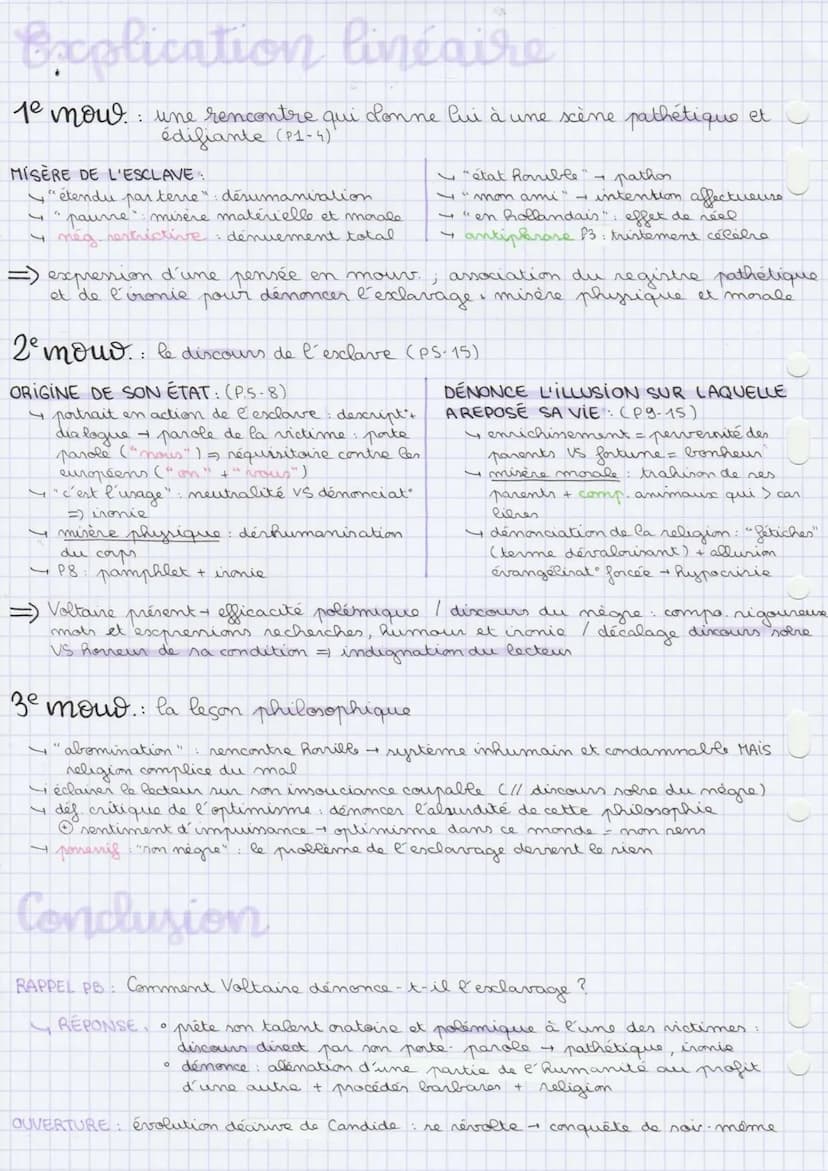 Explication linéaire
1e mouv. : une rencontre qui donne lui à une scène pathétique et
édifiante (P1-4)
MISÈRE DE L'ESCLAVE :
↳ "étendu par terre" : désumanisation
↳ "pauvre" : misère matérielle et morale
↳ nég. restrictive : dénuement total
↳ "état horrible" → pathos
↳ "mon ami" → intention affectueuse
↳ "en hollandais" : effet de réel
↳ antiphrase P3 : tristement célèbre
⇒ expression d'une pensée en mouv. ; association du registre pathétique
et de l'ironie pour dénoncer l'exclavage. misère physique et morale
2e mouv. : le discours de l'esclave (P5-15)
ORIGINE DE SON ÉTAT : (P.5-8)
↳ portrait en action de l'esclave : descript° +
dialogue → parole de la victime : porte
parole ("nous") ⇒ réquisitoire contre les
européens ("on" + "vous")
↳ "c'est l'usage" : neutralité VS dénonciat°
⇒ ironie
↳ misère physique : déshumanisation
du corps
↳ P8 : pamphlet + ironie
DÉNONCE L'ILLUSION SUR LAQUELLE
A REPOSÉ SA VIE : (P9-15)
↳ enrichissement = perversité des
parents VS fortune = bonheur
↳ misère morale : trahison de ses
parents + comp. animaux qui > car
libres
↳ dénonciation de la religion : "fétiches"
(terme dévalorisant) + allusion
évangélisat° forcée → hypocrisie
⇒ Voltaire présent → efficacité polémique / discours du nègre : compo. rigoureuse
mots et expressions recherches, humour et ironie / décalage discours sobre
VS horreur de sa condition ⇒ indignation du lecteur
3e mouv. : la leçon philosophique
↳ "abomination" : rencontre horrible → système inhumain et condamnable MAIS
religion complice du mal
↳ éclairer le lecteur sur son insouciance coupable (// discours sobre du nègre)
↳ déf critique de l'optimisme : dénoncer l'absurdité de cette philosophie
⊕ sentiment d'impuissance → optimisme dans ce monde = non sens
↳ possessif : "son nègre" : le problème de l'esclavage devient le sien
Conclusion
RAPPEL PB : Comment Voltaire dénonce-t-il l'exclavage ?
↳ RÉPONSE. ° prête son talent oratoire et polémique à l'une des victimes :
discours direct par son porte-parole → pathétique, ironie
° dénonce : aliénation d'une partie de l'humanité au profit
d'une autre + procédés barbares + religion
OUVERTURE : évolution décisive de Candide : se révolte → conquête de soir-même